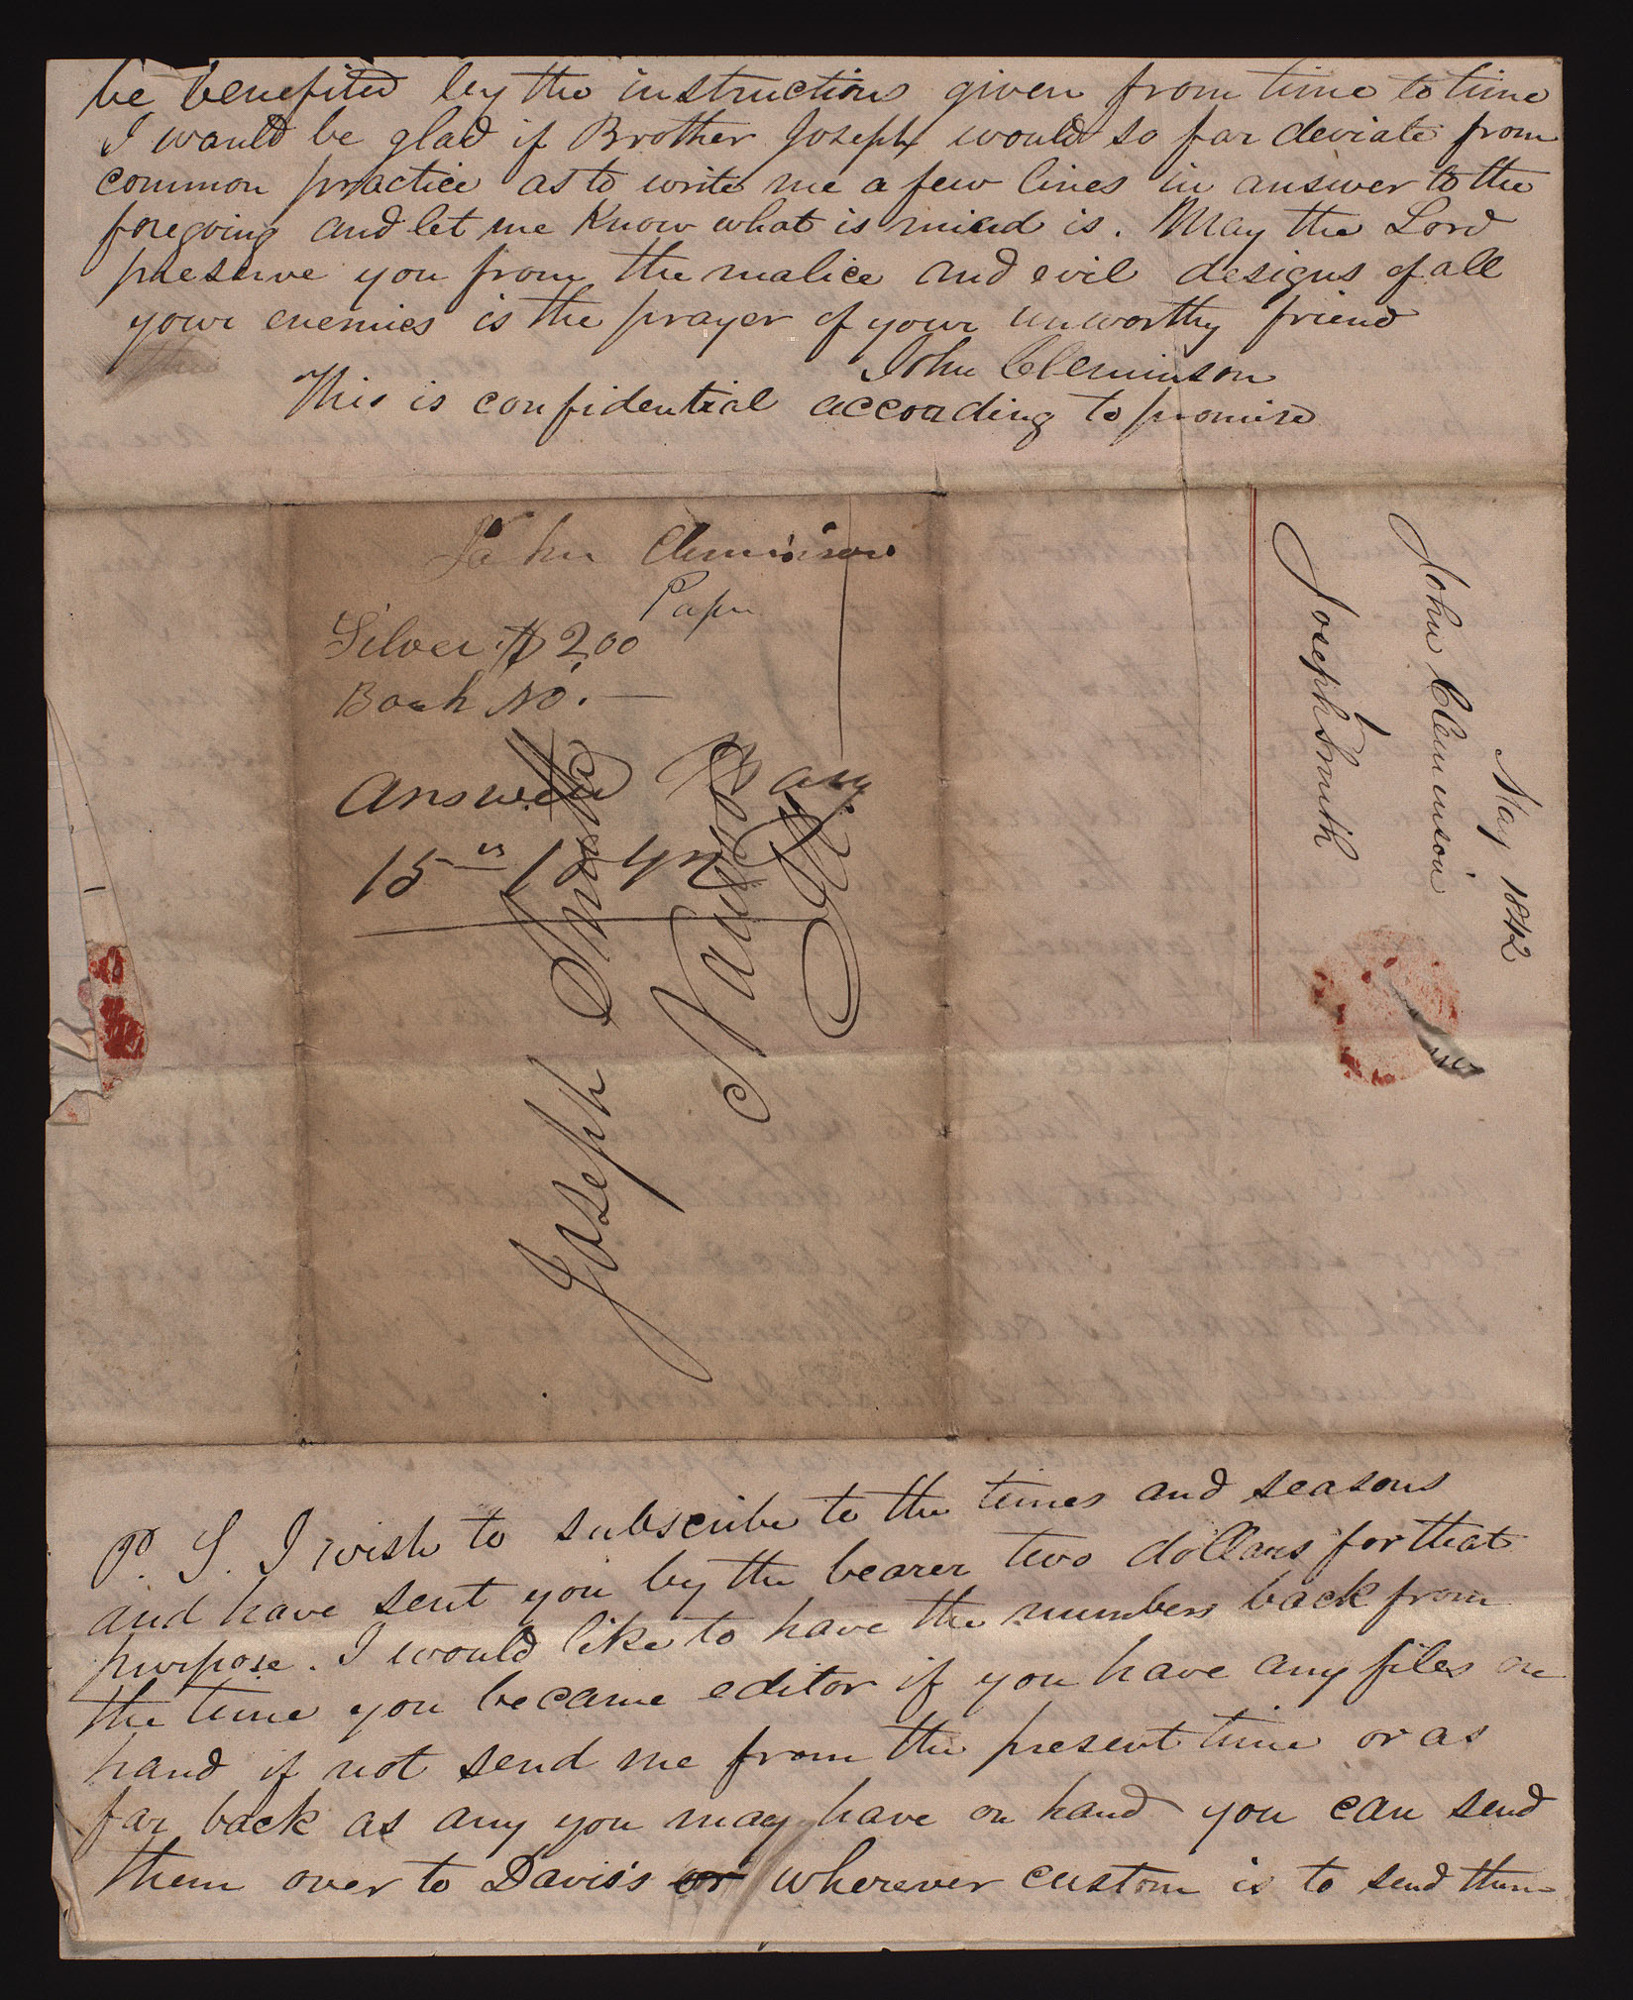 be benefited by the instructions given from time to time
I would be glad if Brother Joseph would so far deviate from
common practice as to write me a few lines in answer to the
foregoing and let me know what is mind is. May the Lord
preserve you from the malice and evil designs of all
your enemies is the prayer of your unworthy friend
John Cleminson
This is confidential according to promise
John Cleminson
Paper
Silver $2,00
Book No. —
Answered
15
Joseph Smith
Nauvoo
Ill.
May 1842
John Cleminson
Joseph Smith
P. S. I wish to subscribe to the times and seasons
and have sent you by the bearer two dollars for that
purpose. I would like to have the numbers back from
the time you became editor if you have any files on
hand if not send me from the present time or as
far back as any you may have on hand you can send
them over to Davis's or wherever custom is to send them